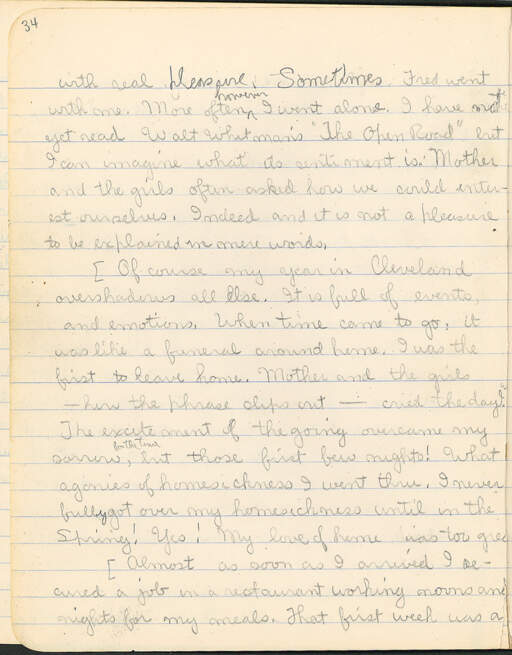 34
with real pleasure. Sometimes Fred went
with me. More often, however I went alone. I have not
yet read Walt Whitman's "The Open Road" but
I can imagine what its sentiment is. Mother
and the girls often asked how we could inter-
est ourselves. Indeed and it is not a pleasure
to be explained in mere words.
[ Of course my year in Cleveland
overshadows all else. It is full of events,
and emotions. When time came to go, it
was like a funeral around home. I was the
first to leave home. Mother and the girls
— how the phrase slips out — cried the day
The excitement of the going overcame my
sorrow, but those first few nights! What
agonies of homesickness I went thru. I never
fully got over my homesickness until in the
Spring! Yes! My love of home was too grea
[ Almost as soon as I arrived I se-
cured a job in a restaurant working noons and
nights for my meals. That first week was a